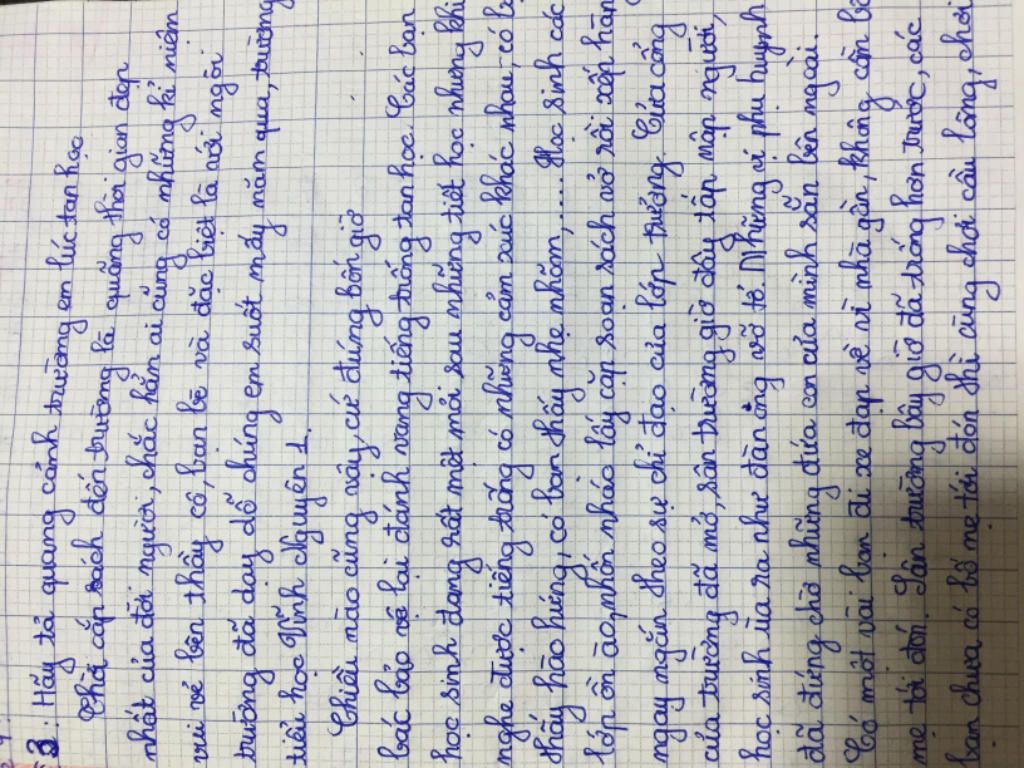 3: Hãy tả quang cảnh trường em lúc tan học
Thời cắp sách đến trường là quãng thời gian đẹp
nhất của đời người, chắc hẳn ai cũng có những kỉ niệm
vui vẻ bên thầy cô, bạn bè và đặc biệt là với ngôi
trường đã dạy dỗ chúng em suốt mấy năm qua, trường
tiểu học Vĩnh Nguyên 1.
Chiều nào cũng vậy, cứ đúng bốn giờ
bác bảo vệ lại đánh vang tiếng trống tan học. Các bạn
học sinh đang rất mệt mỏi sau những tiết học nhưng khi
nghe được tiếng trống có những cảm xúc khác nhau, có
thấy hào hứng, có bạn thấy nhẹ nhõm,.... Học sinh các
lớp ồn ào, nhốn nháo lấy cặp soạn sách vở rồi xếp hàng
ngay ngắn theo sự chỉ đạo của lớp trưởng. Cửa cổng
của trường đã mở, sân trường giờ đây tấp nập người,
học sinh ùa ra như đàn ong vỡ tổ. Những vị phụ huynh
đã đứng chờ những đứa con của mình sẵn bên ngoài.
Có một vài bạn đi xe đạp về vì nhà gần, không cần bố
mẹ tới đón. Sân trường bây giờ đã trống hơn trước, các
bạn chưa có bố mẹ tới đón thì cùng chơi cầu lông, chơi